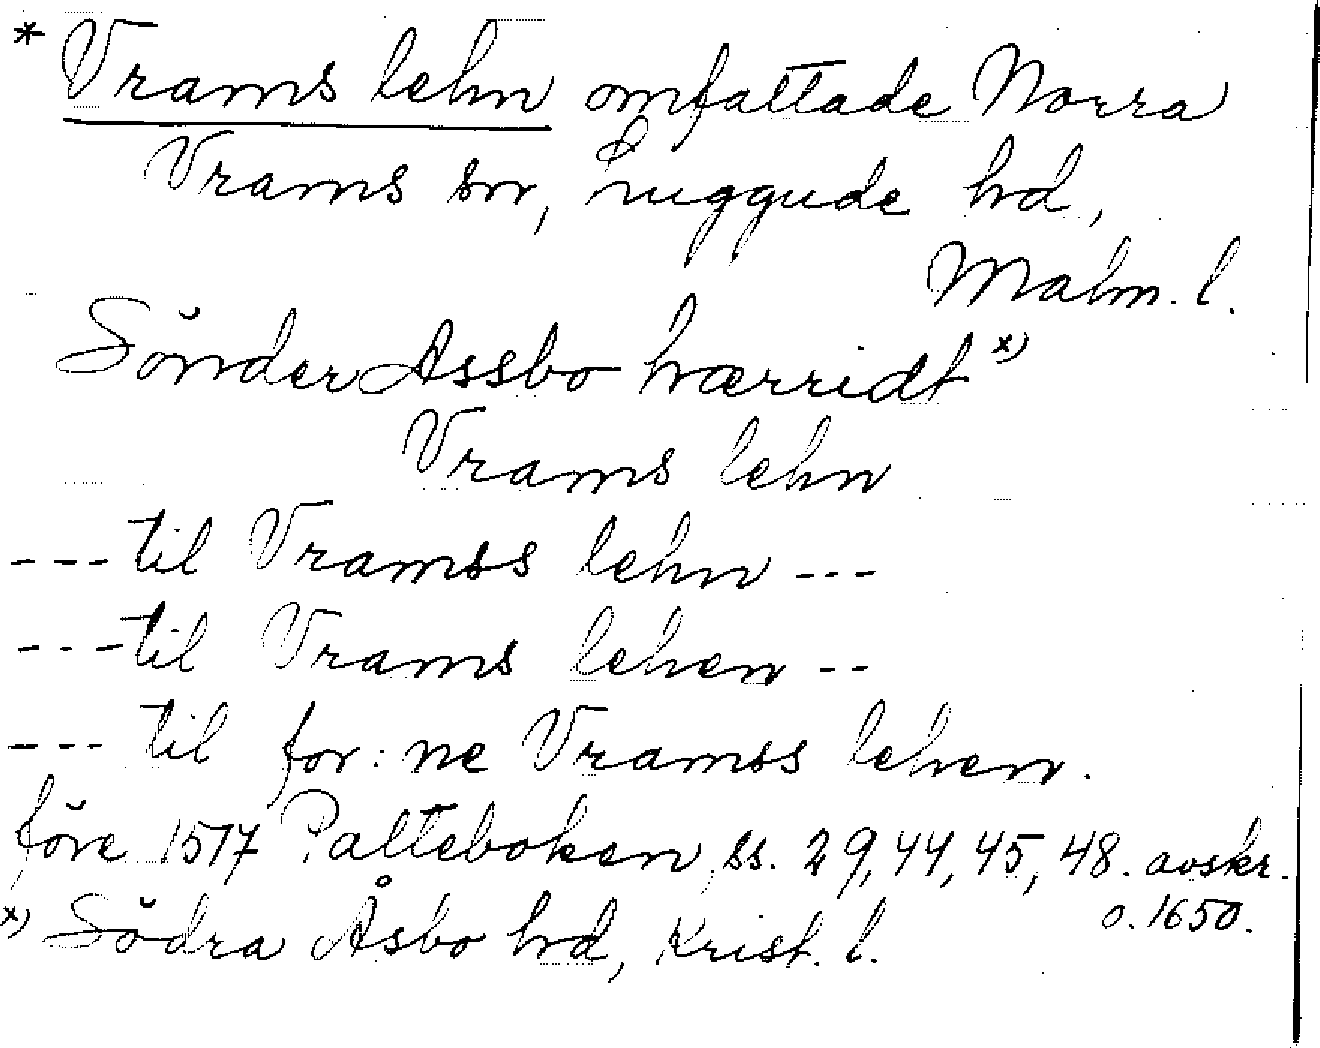 * Vrams lehn omfattade Norra
Vrams sn, Luggude hd,
Malm. l.
Sönder Assbo hærridt x)
Vrams lehn
--- til Vramss lehn ---
--- til Vrams lehen --
--- til for: ne Vramss lehen.
före 1517 Palteboken, ss. 29, 44, 45, 48. avskr.
o. 1650.
x) Södra Åsbo hd, Krist. l.